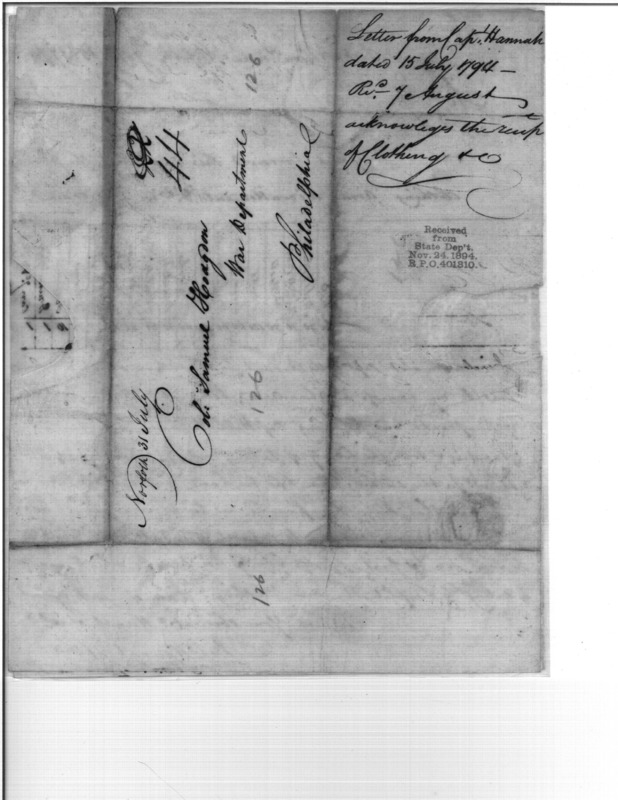 Letter from Capt. Hannah
dated 15 July 1794 -
Recd. 7 August
acknowleges the
of Clothing &c
Received
from
State Dep't.
Nov. 24. 1894.
R.P.O. 401310.
Norfolk 31 July
44
Col: Samuel Hodgdon
War Department
Philadelphia
126
126
126